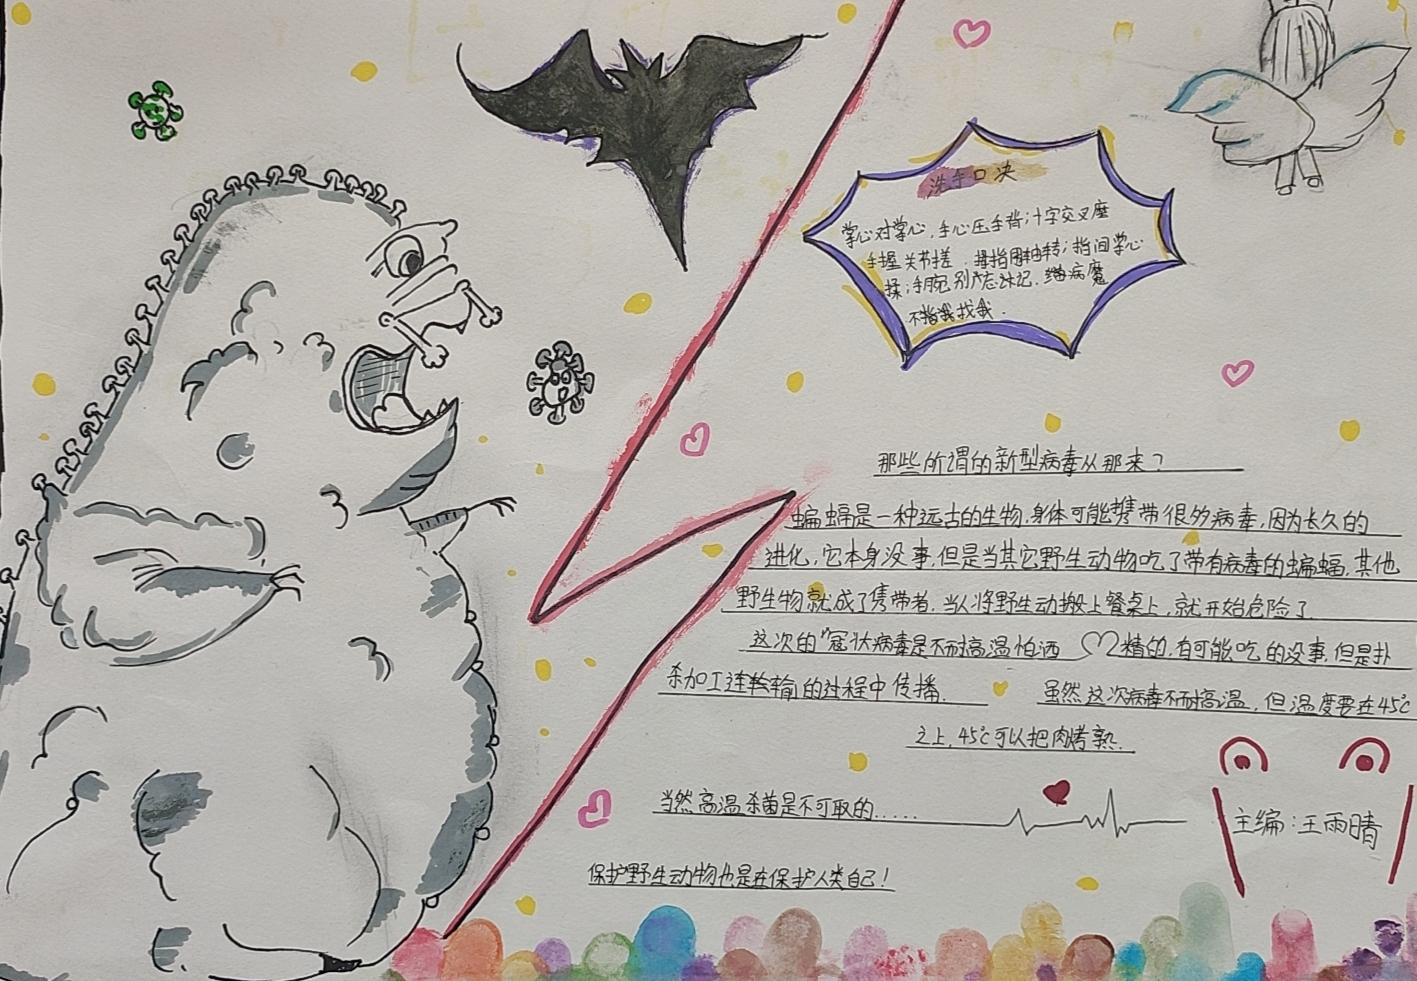 洗手口决
掌心对掌心,手心压手背;十字交叉摩
手握关节搓,拇指围轴转;指间掌心
揉;手腕别忘记,病魔
不找我.
那些所谓的新型病毒从那来?
蝙蝠是一种远古的生物,身体可能携带很多病毒,因为长久的
进化,它本身没事,但是当其它野生动物吃了带有病毒的蝙蝠,其他
野生物就成了携带者,当人将野生动搬上餐桌上,就开始危险了
这次的"冠状病毒是不耐高温怕酒精的,有可能吃的没事,但是扑
杀加工运输的过程中传播.
虽然这次病毒不耐高温,但温度要在45℃
之上,45℃可以把肉烤熟.
当然高温杀菌是不可取的.....
主编:王雨晴
保护野生动物也是在保护人类自己!